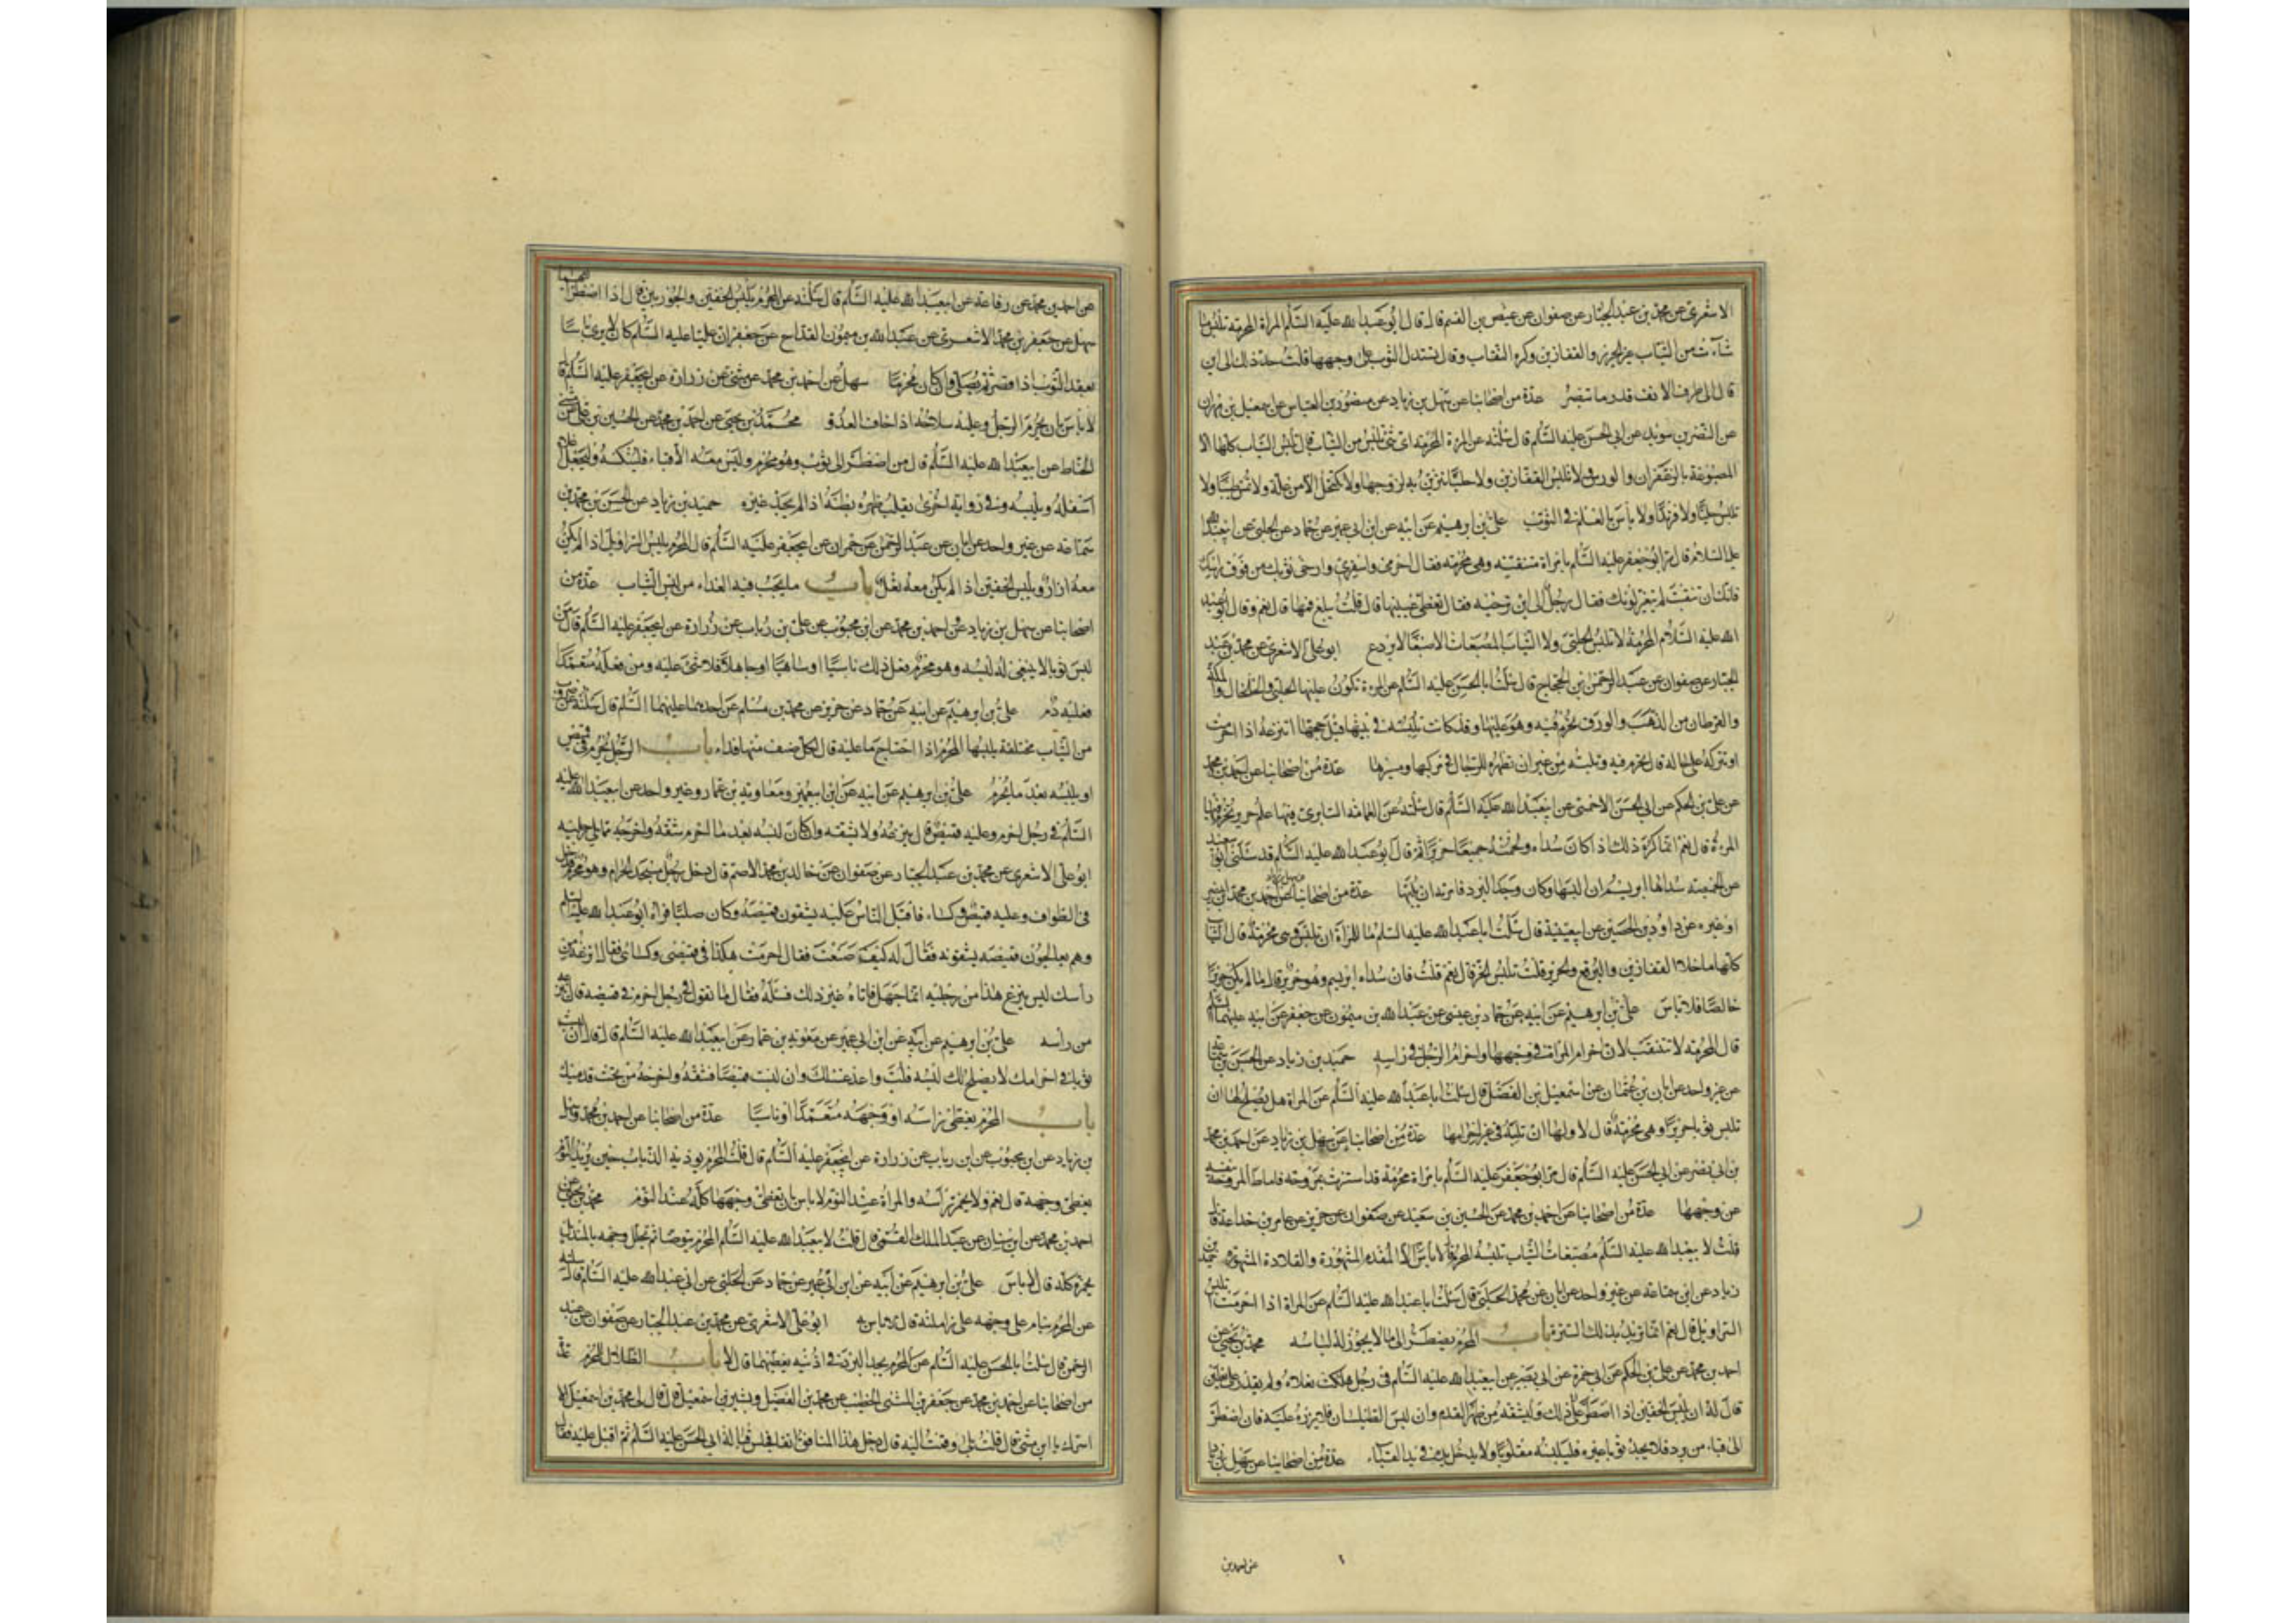 الاشعرى عن محمد بن عبد الجبار عن صفوان عن عيص بن القسم قال قال ابو عبد الله عليه السلام المراة المحرمة تلبس ما
شاءت من الثياب غير الحرير والقفازين وكره النقاب وقال تسدل الثوب على وجهها قلت حد ذلك الى اين
قال الى طرف الانف قدر ما تبصر عدة من اصحابنا عن سهل بن زياد عن منصور بن العباس عن اسمعيل بن مهران
عن النضر بن سويد عن ابى الحسن عليه السلام قال سئلته عن المرءة المحرمة اى شئ تلبس من الثياب قال تلبس الثياب كلها الا
المصبوغة بالزعفران والورس ولا تلبس القفازين ولا حليا تتزين به لزوجها ولا تكتحل الا من علة ولا تمس طيبا ولا
تلبس حليا ولا فرندا ولا باس بالعلم فى الثوب على بن ابرهيم عن ابيه عن ابن ابى عمير عن حماد عن الحلبى عن ابيعبد الله
عليه السلام قال مر ابو جعفر عليه السلام بامراة متنقبة وهى محرمة فقال احرمى واسفرى وارخى ثوبك من فوق راسك
فانك ان تنقبت لم يتغير لونك فقال رجل الى اين ترخيه فقال تغطى عينيها قال قلت يبلغ فمها قال نعم وقال ابو عبد
الله عليه السلام المحرمة لا تلبس الحلى ولا الثياب المصبغات الا صبغا لا يردع ابو على الاشعرى عن محمد بن عبد
الجبار عن صفوان عن عبد الرحمن بن الحجاج قال سئلت ابا الحسن عليه السلام عن المرءة تكون عليها الحلى والخلخال والمسكة
والقرطان من الذهب والورق تحرم فيه وهو عليها وقد كانت تلبسه فى بيتها قبل حجها اتنزعه اذا احرمت
او تتركه على حاله قال تحرم فيه وتلبسه من غير ان تظهره للرجال فى مركبها ومسيرها عدة من اصحابنا عن احمد بن محمد
عن على بن الحكم عن ابى الحسن الاحمسى عن ابيعبد الله عليه السلام قال سئلته عن العمامة السابرى فيها علم حرير تحرم فيها
المرءة قال نعم انما كره ذلك اذا كان سداه ولحمته جميعا حريرا ثم قال ابو عبد الله عليه السلام قد سئلنى ابو سعيد
عن الخميصة سداها ابريسم ان البسها وكان وجد البرد فامرته ان يلبسها عدة من اصحابنا عن احمد بن محمد بن ابى نصر
او غيره عن داود بن الحصين عن ابيعيينة قال سئلت ابا عبد الله عليه السلم ما للمراة ان تلبس وهى محرمة قال الثياب
كلها ما خلا القفازين والبرقع والحرير قلت تلبس الخز قال نعم قلت فان سداه ابريسم وهو حرير قال ما لم يكن حريرا
خالصا فلا باس على بن ابرهيم عن ابيه عن حماد بن عيسى عن عبد الله بن ميمون عن جعفر عن ابيه عليهما السلم
قال المحرمة لا تتنقب لان احرام المراة فى وجهها واحرام الرجل فى راسه حميد بن زياد عن الحسن بن سماعة
عن غير واحد عن ابان بن عثمان عن اسمعيل بن الفضل قال سئلت ابا عبد الله عليه السلم عن المراة هل يصلح لها ان
تلبس ثوبا حريرا وهى محرمة قال لا ولها ان تلبسه فى غير احرامها عدة من اصحابنا عن سهل بن زياد عن احمد بن محمد
بن ابى نصر عن ابى الحسن عليه السلام قال مر ابو جعفر عليه السلم بامراة محرمة قد استترت بمروحة فاماط المروحة بنفسه
عن وجهها عدة من اصحابنا عن احمد بن محمد عن الحسين بن سعيد عن صفوان عن حريز عن عامر بن جذاعة قال
قلت لابيعبد الله عليه السلم مصبغات الثياب تلبسه المحرمة فقال لا باس الا المفدم المشهورة والقلادة المشهورة حميد بن
زياد عن ابن سماعة عن غير واحد عن ابان عن محمد الحلبى قال سئلت ابا عبد الله عليه السلم عن المراة اذا احرمت اتلبس
السراويل قال نعم انما تريد بذلك السترة باب المحرم يضطر الى ما لا يجوز له لباسه محمد بن يحيى عن
احمد بن محمد عن على بن الحكم عن ابى حمزة عن ابى بصير عن ابيعبد الله عليه السلام فى رجل هلكت نعلاه ولم يقدر على نعلين
قال له ان يلبس الخفين اذا اضطر الى ذلك وليشقه من ظهر القدم وان لبس الطيلسان فلا يزره عليه فان اضطر
الى قباء من برد فلا يجد ثوبا غيره فليلبسه مقلوبا ولا يدخل يديه فى يد القباء عدة من اصحابنا عن سهل بن زياد
عن احمد بن
عن احمد بن محمد عن رفاعة عن ابيعبد الله عليه السلم قال سئلته عن المحرم يلبس الخفين والجوربين قال اذا اضطر اليهما
سهل عن جعفر بن محمد الاشعرى عن عبد الله بن ميمون القداح عن جعفر ان عليا عليه السلم كان لا يرى باسا
بعقد الثوب اذا قصر ثم يصلى وان كان محرما سهل عن احمد بن محمد عن مثنى عن زرارة عن ابيجعفر عليه السلم قال
لا باس بان يحرم الرجل وعليه سلاحه اذا خاف العدو محمد بن يحيى عن احمد بن محمد عن الحسين بن على عن مثنى
الحناط عن ابيعبد الله عليه السلم قال من اضطر الى ثوب وهو محرم وليس معه الا قباء فلينكسه وليجعل اعلاه
اسفله ويلبسه وفى رواية اخرى يقلب ظهره بطنه اذا لم يجد غيره حميد بن زياد عن الحسن بن محمد بن
سماعة عن غير واحد عن ابان عن عبد الرحمن عن حمران عن ابيجعفر عليه السلم قال المحرم يلبس السراويل اذا لم يكن
معه ازار ويلبس الخفين اذا لم يكن معه نعل باب ما يجب فيه الفداء من لبس الثياب عدة من
اصحابنا عن سهل بن زياد وعن احمد بن محمد عن ابن محبوب عن على بن رئاب عن زرارة عن ابيجعفر عليه السلم قال من
لبس ثوبا لا ينبغى له لبسه وهو محرم ففعل ذلك ناسيا او ساهيا او جاهلا فلا شئ عليه ومن فعله متعمدا
فعليه دم على بن ابرهيم عن ابيه عن حماد عن حريز عن محمد بن مسلم عن احدهما عليهما السلم قال سئلته عن ضروب
من الثياب مختلفة يلبسها المحرم اذا احتاج ما عليه قال لكل صنف منها فداء باب الرجل يحرم فى قميص
او يلبسه بعد ما يحرم على بن ابرهيم عن ابيه عن ابن ابيعمير ومعاوية بن عمار وغير واحد عن ابيعبد الله عليه
السلم فى رجل احرم وعليه قميص قال ينزعه ولا يشقه وان كان لبسه بعد ما احرم شقه واخرجه مما يلى رجليه
ابو على الاشعرى عن محمد بن عبد الجبار عن صفوان عن خالد بن محمد الاصم قال دخل رجل مسجد الحرام وهو محرم فدخل
فى الطواف وعليه قميص وكساء فاقبل الناس عليه يشقون قميصه وكان صلبا فراه ابو عبد الله عليه السلم
وهم يعالجون قميصه يشقونه فقال له كيف صنعت فقال احرمت هكذا فى قميصى وكسائى فقال انزعه من
رأسك ليس ينزع هذا من رجليه انما جهل فاتاه غير ذلك فسئله فقال ما تقول فى رجل احرم فى قميصه قال ينزعه
من رأسه على بن ابرهيم عن ابيه عن ابن ابى عمير عن معوية بن عمار عن ابيعبد الله عليه السلم قال قال ان لبست
ثوبا فى احرامك لا يصلح لك لبسه فلب واعد غسلك وان لبست قميصا فشقه واخرجه من تحت قدميك
باب المحرم يغطى راسه او وجهه متعمدا او ناسيا عدة من اصحابنا عن احمد بن محمد وسهل
بن زياد عن ابن محبوب عن ابن رياب عن زرارة عن ابيجعفر عليه السلم قال قلت المحرم يوذيه الذباب حين يريد النوم
يغطى وجهه قال نعم ولا يخمر رأسه والمراة عند النوم لا باس بان تغطى وجهها كله عند النوم محمد بن يحيى عن
احمد بن محمد عن ابن سنان عن عبد الملك القمى قال قلت لابيعبد الله عليه السلم المحرم يتوضا ثم يجلل وجهه بالمنديل
يخمره كله قال لا باس على بن ابرهيم عن ابيه عن ابن ابى عمير عن حماد عن الحلبى عن ابى عبد الله عليه السلم قال سالته
عن المحرم ينام على وجهه على زاملته قال لا باس به ابو على الاشعرى عن محمد بن عبد الجبار عن صفوان عن عبد
الرحمن قال سئلت ابا الحسن عليه السلم عن المحرم يجد البرد فى اذنيه يغطيهما قال لا باب الظلال للمحرم عدة
من اصحابنا عن احمد بن محمد عن جعفر بن المثنى الخطيب عن محمد بن الفضيل وبشير بن اسمعيل قال قال لى محمد بن اسمعيل الا
اسرك يا ابن مثنى قال قلت بلى وقمت اليه قال دخل هذا الفاسق انفا فجلس قبالة ابى الحسن عليه السلم ثم اقبل عليه فقال